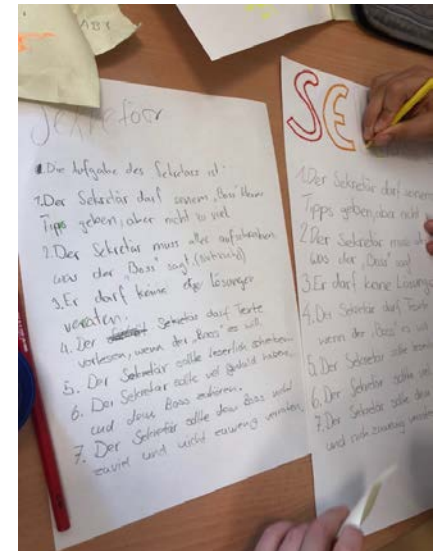 ABY
Sekretär
Die Aufgabe des Sekretärs ist:
1. Der Sekretär darf seinem "Boss" kleine
Tipps geben, aber nicht so viel
2. Der Sekretär muss alles aufschreiben
was der "Boss" sagt.
3. Er darf keine Lösungen
verraten.
4. Der Sekretär darf Texte
vorlesen, wenn der "Boss" es will.
5. Der Sekretär sollte leserlich schreiben
6. Der Sekretär sollte viel geduld haben,
und dem Boss zuhören.
7. Der Sekretär sollte dem Boss nicht
zuviel und nicht zuwenig verraten.
SE
1. Der Sekretär darf seinem
Tipps geben, aber nicht
2. Der Sekretär muss
was der "Boss" sagt
3. Er darf keine Lösungen
4. Der Sekretär darf Texte
wenn der "Boss" es will
5. Der Sekretär sollte
6. Der Sekretär sollte viel
7. Der Sekretär sollte dem
und nicht zuwenig